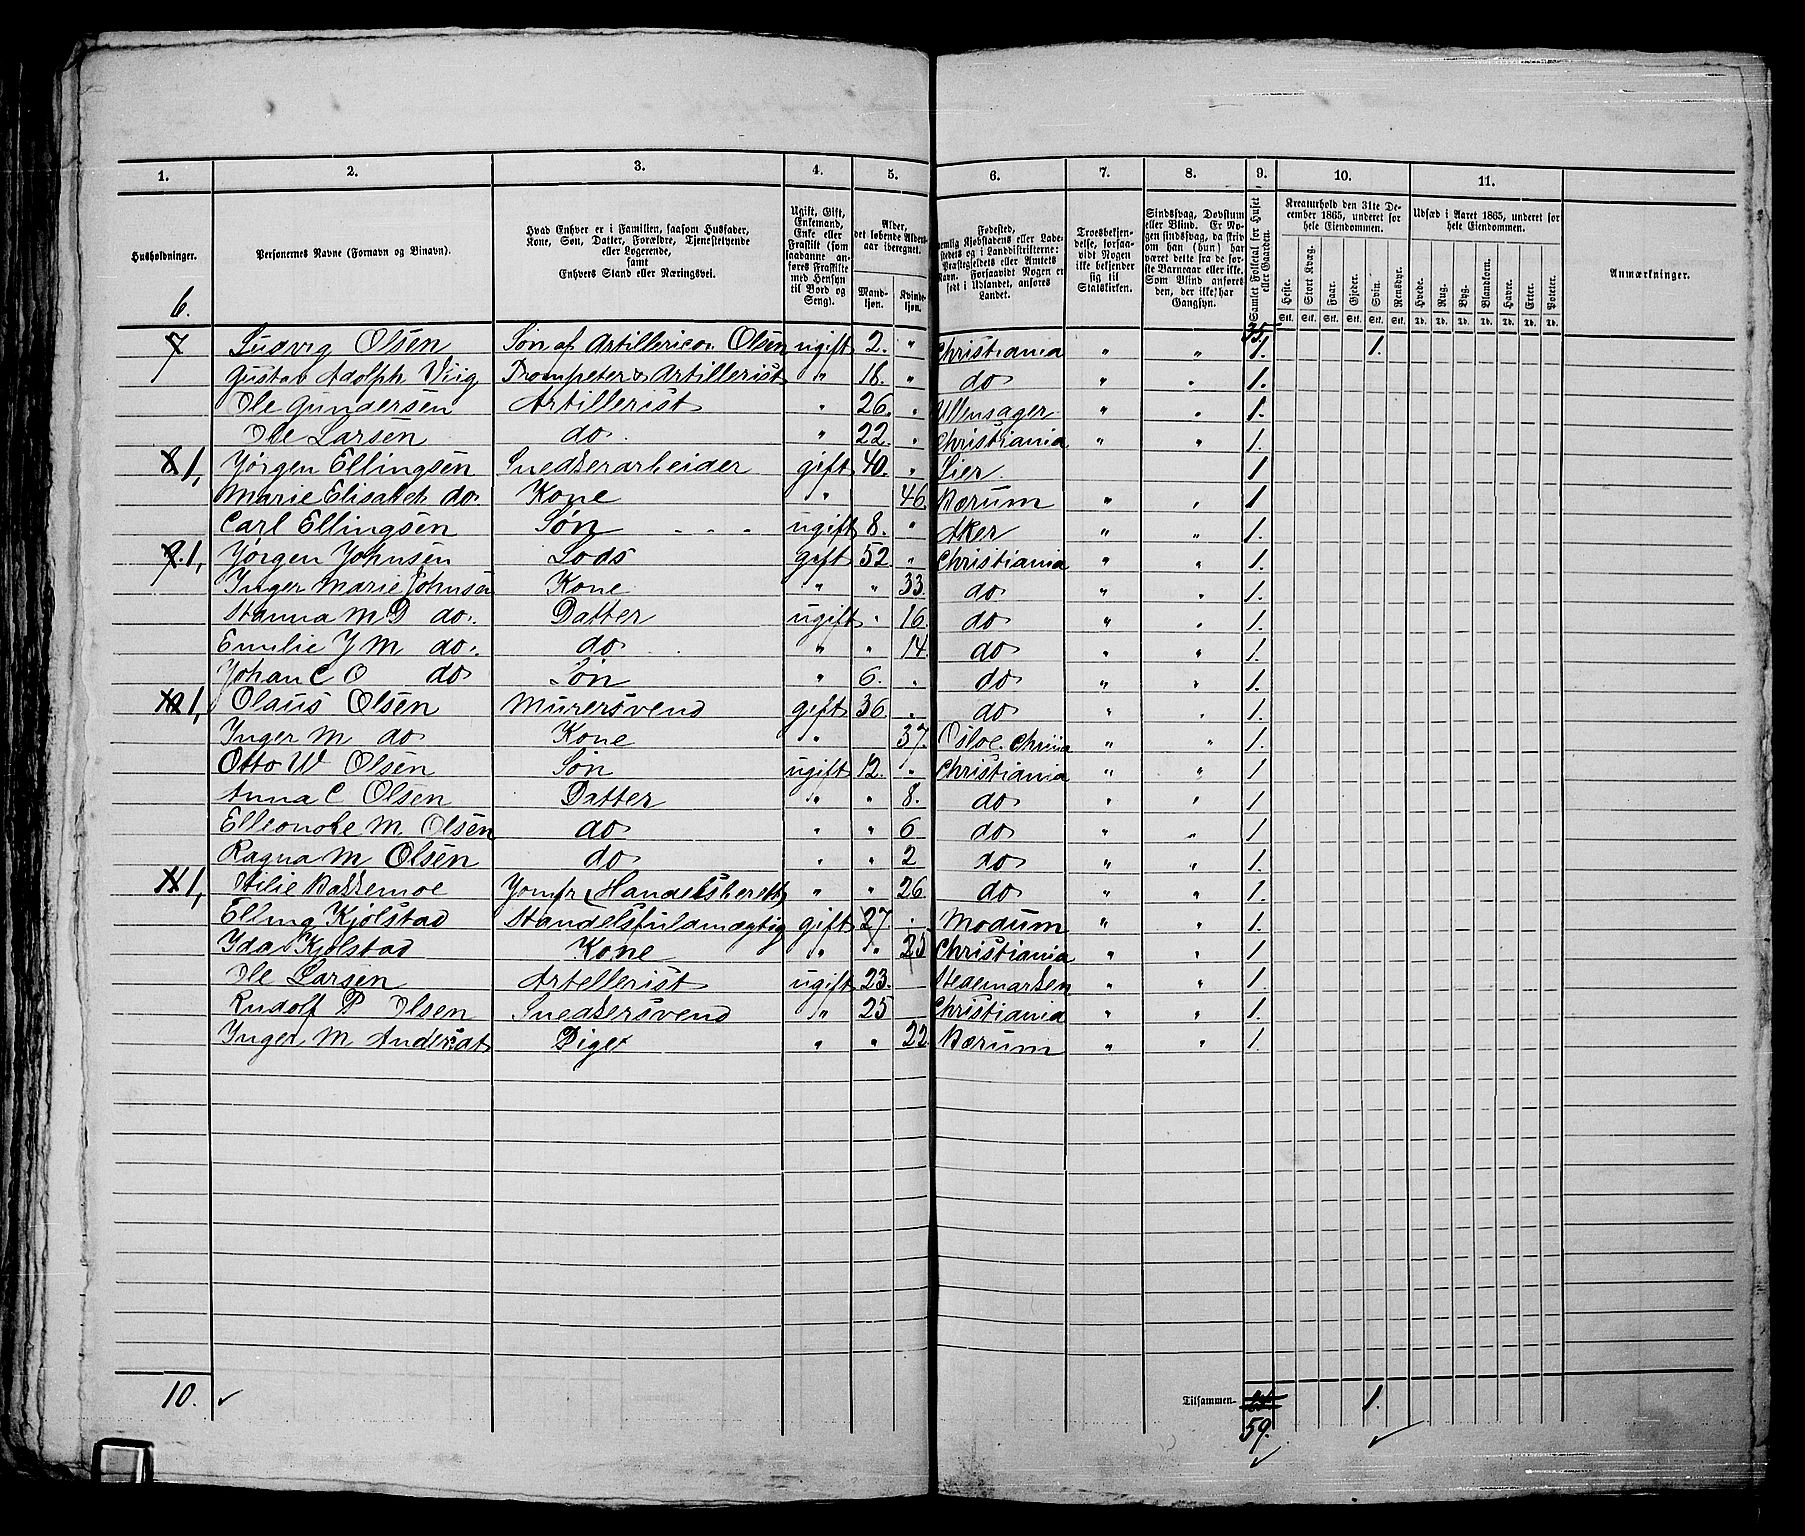 1. 2. 3. 4. 5. 6. 7. 8. 9. 10. 11.
Husholdninger.
Personernes Navne (Fornavn og Binavn).
Hvad Enhver er i Familien, saasom Husfader,
Kone, Søn, Datter, Forældre, Tjenestetyende
eller Logerende,
samt
Enhvers Stand eller Næringsvei.
Ugift, Gift,
Enkemand,
Enke eller
Fraskilt (som
saadanne an-
føres Fraskilte
med Hensyn
til Bord og
Seng).
Alder,
det løbende Alders-
aar iberegnet.
Mand-
kjøn.
Kvinde-
kjøn.
Fødested,
nemlig Kjøbstadens eller Lade-
stedets og i Landdistrikterne:
Præstegjeldets eller Amtets
Navn. Forsaavidt Nogen er
født i Udlandet, anføres
Landet.
Troesbekjen-
delse, forsaa-
vidt Nogen
ikke bekjender
sig til
Statskirken.
Sindssvag, Døvstum
eller Blind. Er No-
gen sindssvag, da skriv
om han (hun) har
været dette fra de før-
ste Barneaar eller ikke.
Som Blind anføres
den, der ikke har
Gangsyn.
Samlet Folketal for Huset
eller Gaarden.
Kreaturhold den 31te De-
cember 1865, underet for
hele Eiendommen.
Heste. Stort Kvæg. Faar. Gjeder. Svin. Rensdyr.
Stk. Stk. Stk. Stk. Stk. Stk.
Udsæd i Aaret 1865, underet for
hele Eiendommen.
Hvede. Rug. Byg. Blandkorn. Havre. Erter. Poteter.
Td. Td. Td. Td. Td. Td. Td.
Anmærkninger.
6. 35.
7 Ludvig Olsen Søn af Artillerico. Olsen ugift 2. " Christiania " " 1. 1.
Gustav Adolph Viig Trompeter & Artillerist " 18. " do " " 1.
Ole Gundersen Artillerist " 26. " Ullensager " " 1.
Ole Larsen do. " 22. " Christiania " " 1.
8 1, Jørgen Ellingsen Snedkerarbeider gift 40. " Lier 1
Marie Elisabeth do. Kone " 46. Bærum " " 1
Carl Ellingsen Søn ugift 8. " Aker " " 1.
9. 1, Jørgen Johnsen Lods gift 52 " Christiania " " 1.
Inger Marie Johnsen Kone " " 33. do " " 1.
Hanna M D do. Datter ugift " 16. do " " 1.
Emilie J M do. do " " 14. do " " 1.
Johan C O do Søn " 6. " do " " 1.
10 1, Olaus Olsen Murersvend gift 36. " do " " 1.
Inger M do Kone " 37. Osloe Chriia " " 1.
Otto W Olsen Søn ugift 12. " Christiania " " 1
Anna C Olsen Datter " " 8. do " " 1
Elleonore M. Olsen do " " 6 do " " 1.
Ragna M Olsen do " " 2 do " " 1.
11 1, Otilie Bakkemoe Jomfr (Handelsberett) " " 26. do " " 1.
Elling Kjølstad Handelsfuldmægtig gift 27. " Modum " " 1.
Ida Kjølstad Kone " " 25 Christiania " " 1.
Ole Larsen Artellerist ugift 23. Hedemarken " " 1.
Rudolf P Olsen Snedkersvend " 25 Christiania " " 1.
Inger M Andersdat Pige " " 22. Bærum " " 1.
10. Tilsammen 1.
59.